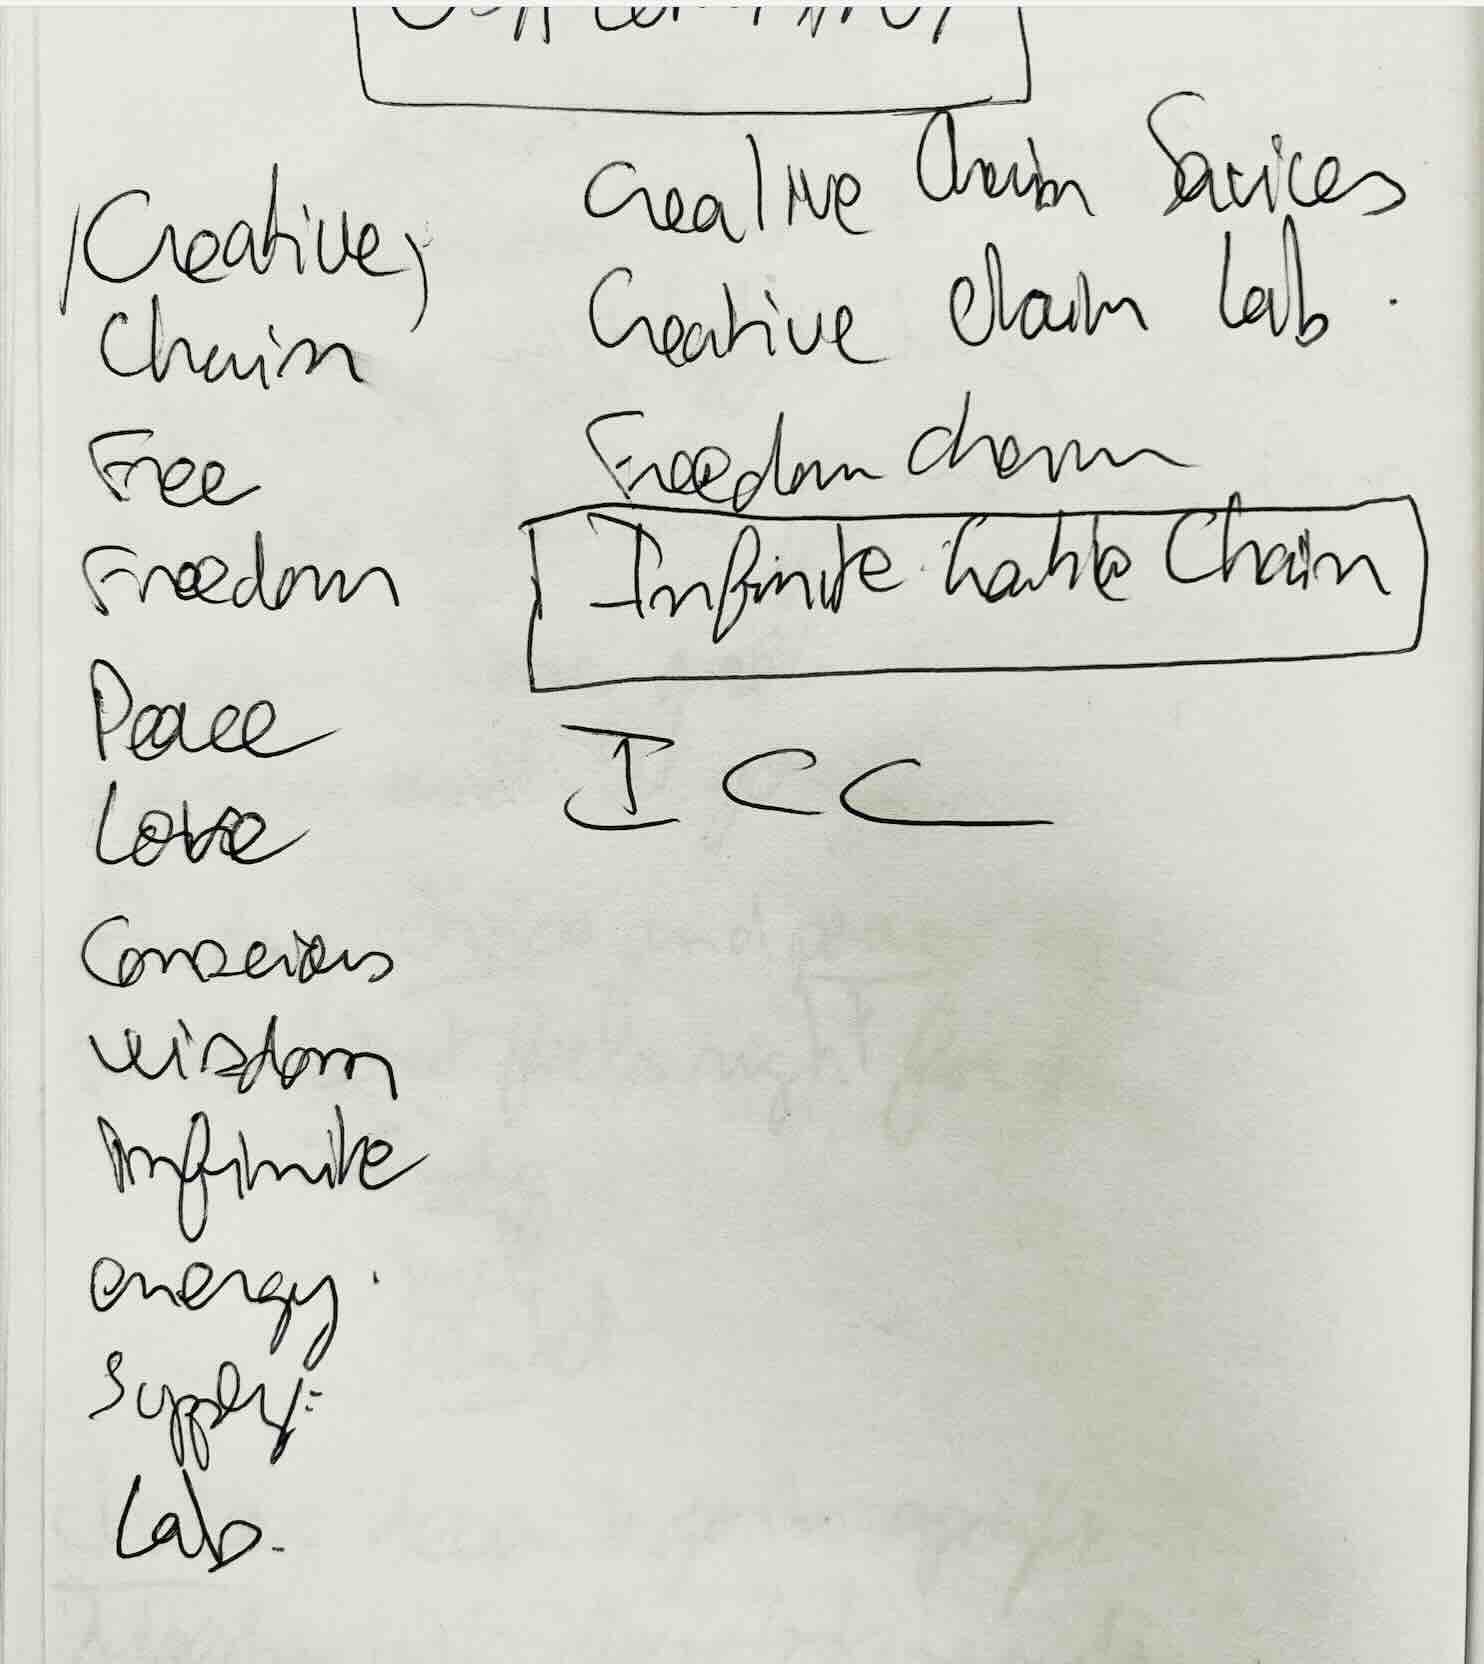 Creative,
Chain
Free
Freedom
Peace
Love
Conscious
wisdom
Infinite
energy.
Supply:
Lab.
Creative Chain Services
Creative Chain Lab.
Freedom chain
Infinite Chain
ICC